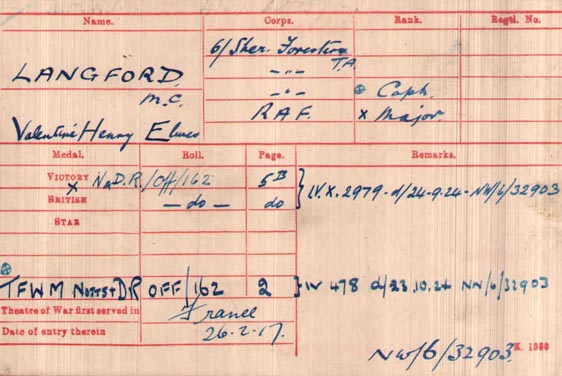 Name. Corps. Rank. Regtl. No.
6/Sher. Foresters
T.A.
LANGFORD.
M.C. —"— ⊕ Capt.
R.A.F. x Major.
Valentine Henry Elwes
Medal. Roll. Page. Remarks.
VICTORY x N&D.R./Off/162 5B } IV.X.2979-d/24-9.24-NW/6/32903
BRITISH —do— do
STAR
⊕
TFWM NOTTS+DR OFF/162 2 } IV 478 d/23.10.24 NW/6/32903
Theatre of War first served in France
Date of entry therein 26.2.17.
NW/6/32903. K. 1380